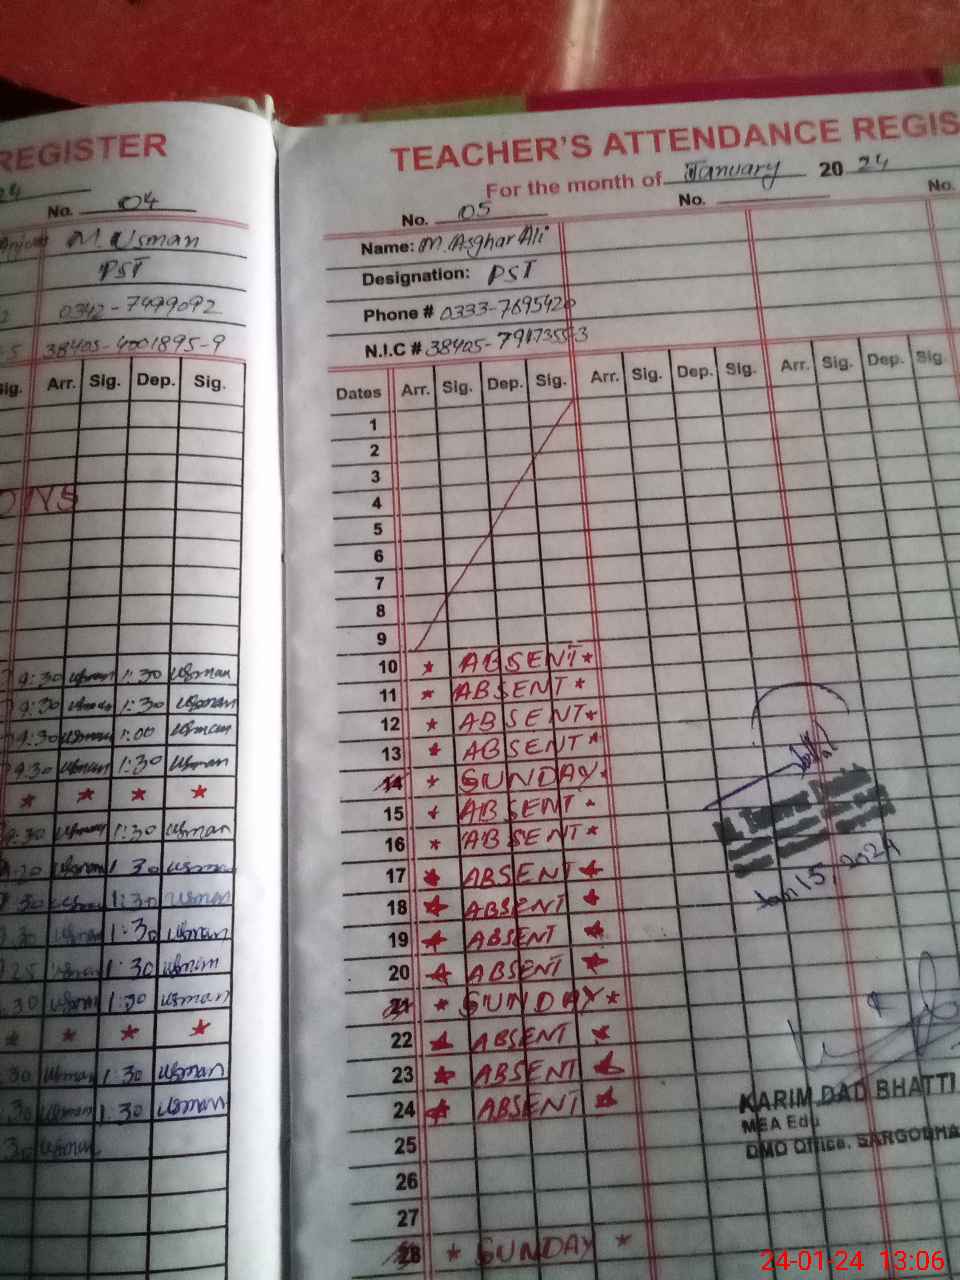 REGISTER
24
No. 04
M. Usman
PST
0342-7499092
38405-4001895-9
Sig. Arr. Sig. Dep. Sig.
ONS
9:30 Usman 1:30 Usman
9:30 Usman 1:30 Usman
9:30 Usman 1:00 Usman
9:30 Usman 1:30 Usman
* * * *
9:30 Usman 1:30 Usman
1:30 Usman
1:30 Usman
30 Usman 1:30 Usman
25 Usman 1:30 Usman
30 Usman 1:30 Usman
* * * *
30 Usman 1:30 Usman
30 Usman 1:30 Usman
30 Usman
TEACHER'S ATTENDANCE REGIS
For the month of January 2024
No. 05 No. No.
Name: M. Asghar Ali
Designation: PST
Phone # 0333-7695420
N.I.C # 38405-7917355-3
Dates Arr. Sig. Dep. Sig. Arr. Sig. Dep. Sig. Arr. Sig. Dep. Sig.
1
2
3
4
5
6
7
8
9
10 * ABSENT *
11 * ABSENT *
12 * ABSENT *
13 * ABSENT *
14 * SUNDAY *
15 * ABSENT *
16 * ABSENT *
17 * ABSENT *
18 * ABSENT *
19 * ABSENT *
20 * ABSENT *
21 * SUNDAY *
22 * ABSENT *
23 * ABSENT *
24 * ABSENT *
25
26
27
28 * SUNDAY *
Jan 15, 2024
KARIM DAD BHATTI
MEA Edu
DMO Office, SARGODHA
24-01-24 13:06